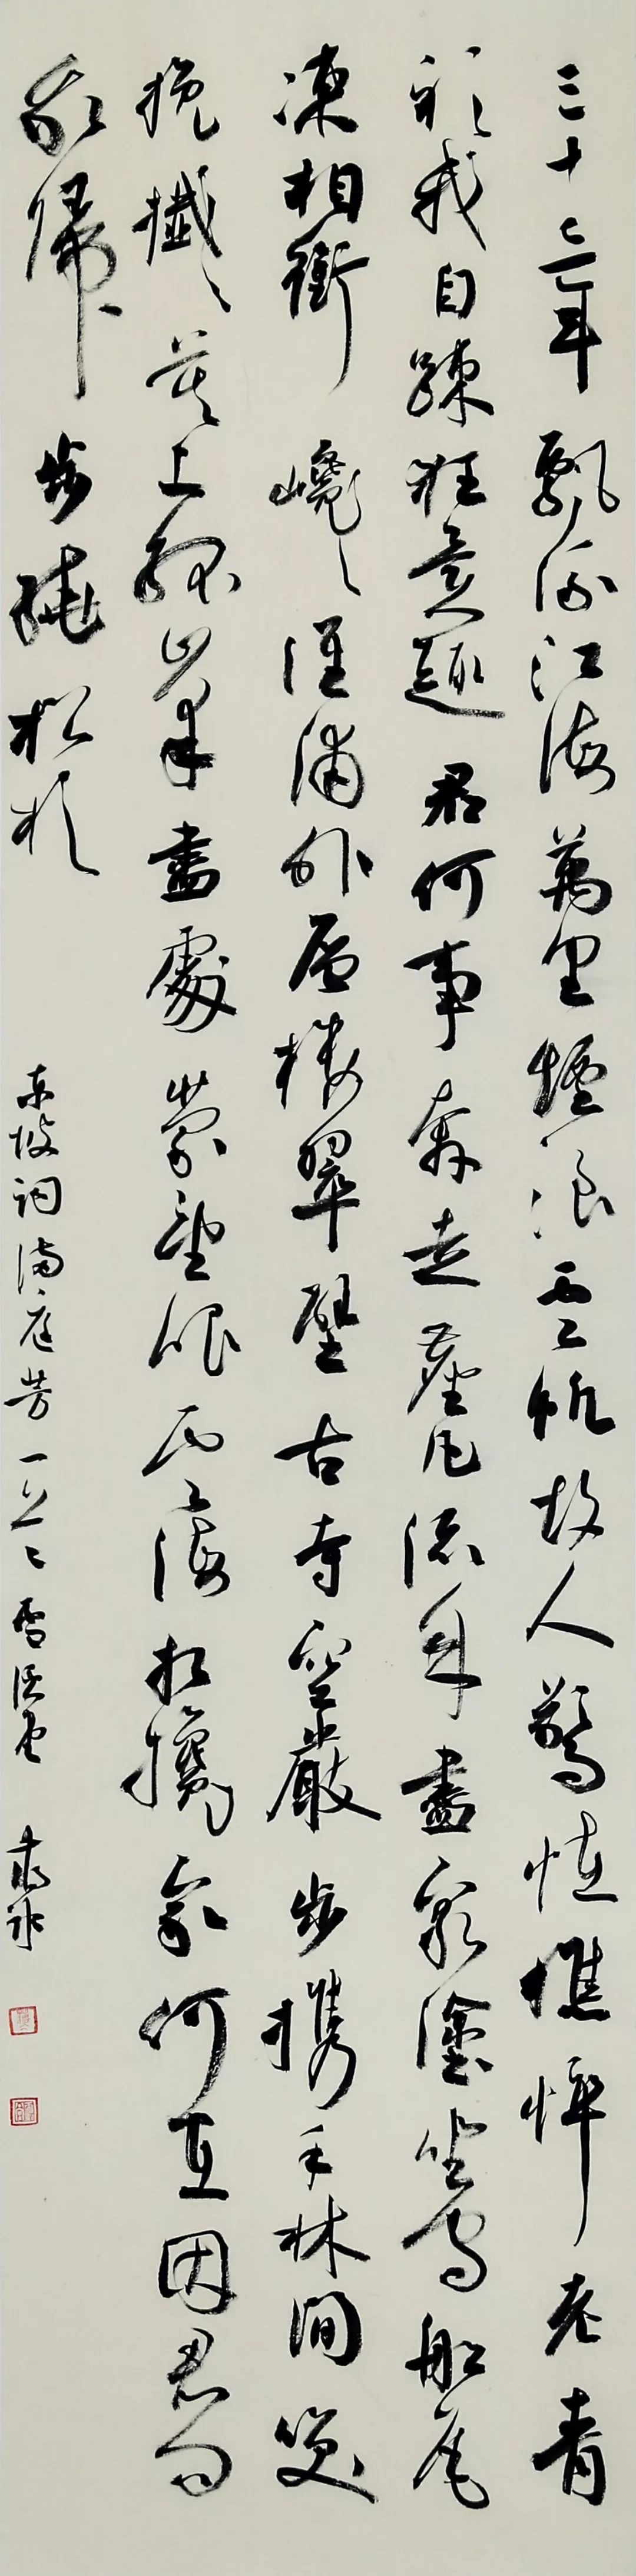 三十三年飄流江海萬里煙浪雲帆故人驚怪憔悴老青
衫我自疎狂異趣君何事奔走塵凡流年盡窮途坐守船尾
凍相銜巉巉淮浦外層樓翠壁古寺空巖步攜手林間笑
挽攕攕莫上孤峯盡處縈望眼雲海相攙家何在因君問
我歸步繞松杉
東坡詞滿庭芳一九九